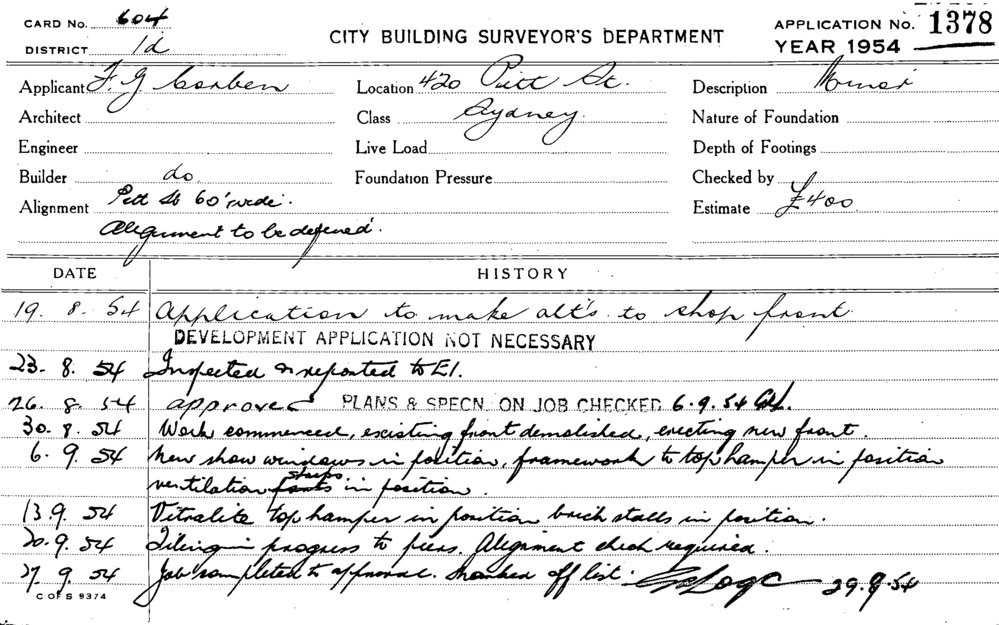 CARD No. 604
DISTRICT 1d
CITY BUILDING SURVEYOR'S DEPARTMENT
APPLICATION No. 1378
YEAR 1954
Applicant F. G. Corben Location 420 Pitt St. Description Minor
Architect Class Sydney. Nature of Foundation
Engineer Live Load Depth of Footings
Builder do. Foundation Pressure Checked by
Alignment Pitt St 60' wide. Estimate £400
Alignment to be defined.
DATE HISTORY
19. 8. 54 Application to make alt's to shop front
DEVELOPMENT APPLICATION NOT NECESSARY
23. 8. 54 Inspected & reported to E1.
26. 8. 54 approved PLANS & SPECN. ON JOB CHECKED 6.9.54
30. 8. 54 Work commenced, existing front demolished, erecting new front.
6. 9. 54 New show windows in position, framework to top hamper in position
strips
ventilation in position.
13. 9. 54 Vitralite top hamper in position brick stalls in position.
20. 9. 54 Tiling in progress to piers. Alignment check required.
27. 9. 54 Job completed to approval. Marked off list. 29.9.54
C OF S 9374